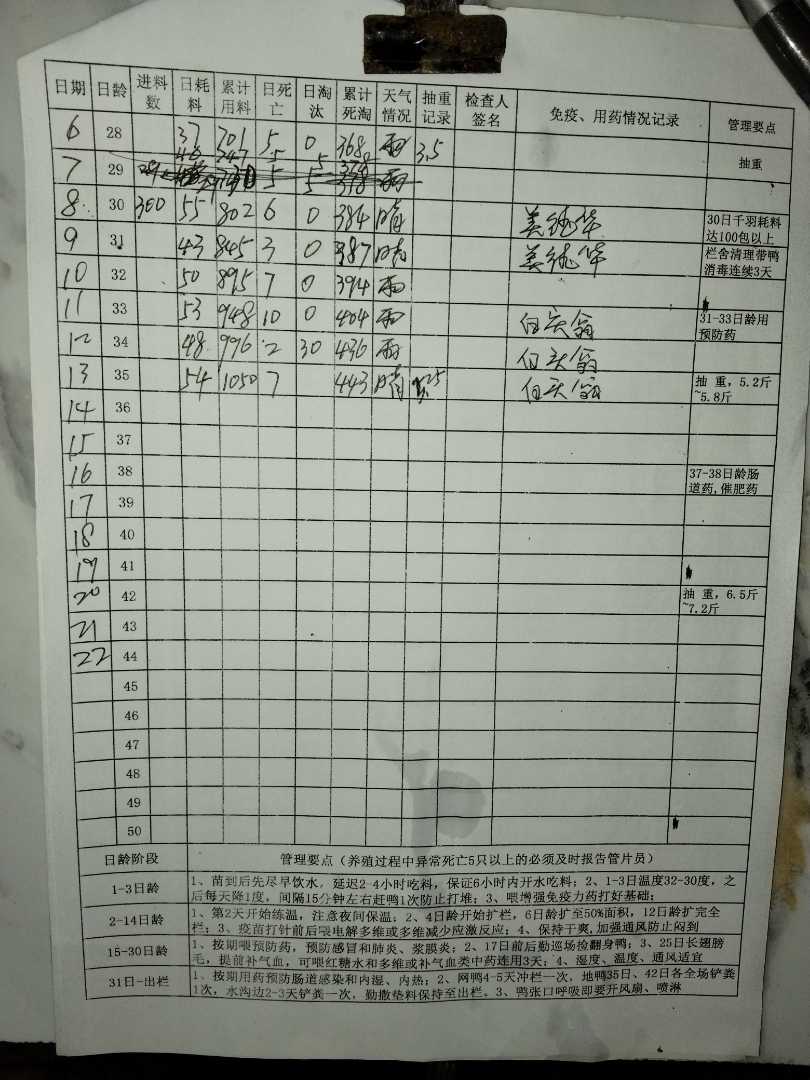 日期 日龄 进料数 日耗料 累计用料 日死亡 日淘汰 累计死淘 天气情况 抽重记录 检查人签名 免疫、用药情况记录 管理要点
6 28 37 701 5 0 368 雨 3.5 抽重
7 29 5 5 378 雨
8 30 300 55 802 6 0 384 晴 30日千羽耗料达100包以上
9 31 43 845 3 0 387 晴 栏舍清理带鸭消毒连续3天
10 32 50 895 7 0 394 雨
11 33 53 948 10 0 404 雨 白头翁 31-33日龄用预防药
12 34 48 996 2 30 436 雨 白头翁
13 35 54 1050 7 443 晴 白头翁 抽 重，5.2斤~5.8斤
14 36
15 37
16 38 37-38日龄肠道药,催肥药
17 39
18 40
19 41
20 42 抽 重，6.5斤~7.2斤
21 43
22 44
45
46
47
48
49
50
日龄阶段 管理要点（养殖过程中异常死亡5只以上的必须及时报告管片员）
1-3日龄 1、苗到后先尽早饮水，延迟2-4小时吃料，保证6小时内开水吃料；2、1-3日温度32-30度，之
后每天降1度，间隔15分钟左右赶鸭1次防止打堆；3、喂增强免疫力药打好基础；
2-14日龄 1、第2天开始练温，注意夜间保温；2、4日龄开始扩栏，6日龄扩至50%面积，12日龄扩完全
栏；3、疫苗打针前后喂电解多维或多维减少应激反应；4、保持干爽,加强通风防止闷到
15-30日龄 1、按期喂预防药，预防感冒和肺炎、浆膜炎；2、17日前后勤巡场捡翻身鸭；3、25日长翅膀
毛，提前补气血，可喂红糖水和多维或补气血类中药连用3天；4、湿度、温度、通风适宜
31日-出栏 1、按期用药预防肠道感染和内湿、内热；2、网鸭4-5天冲栏一次，地鸭35日、42日各全场铲粪
1次，水沟边2-3天铲粪一次，勤撒垫料保持至出栏。3、鸭张口呼吸即要开风扇、喷淋